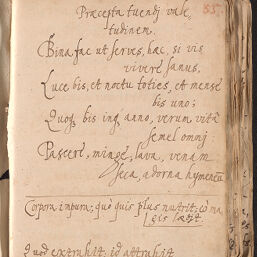 Præcepta tuendj vale
tudinem.
85.
Bina fac ut serves, hæc, si vis
vivere sanus,
Luce bis, et noctu toties, et mense
bis uno;
Quoq bis ing anno, verum vita
semel omnj:
Pascere, minge, lava, venam
seca, adorna hymenæu
Corpora impura; quò quis plus nutrit; eò ma
gis lædit
Quod extrahit; id attrahit